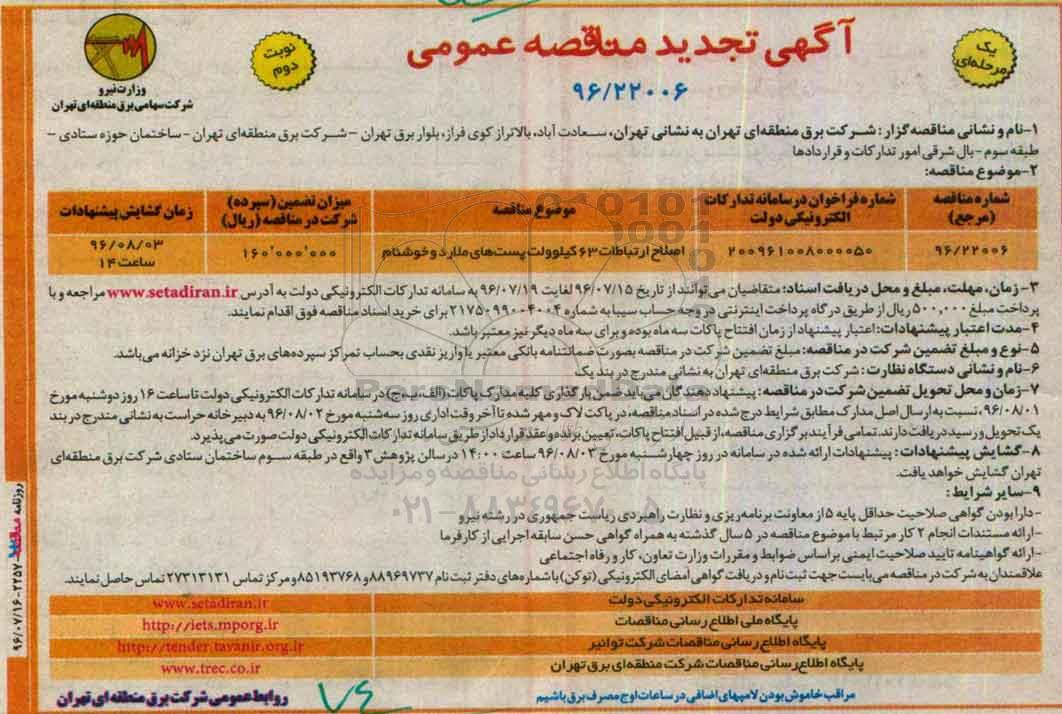 آگهی تجدید مناقصه عمومی
۹۶/۲۲۰۰۶
یک مرحله‌ای
نوبت دوم
وزارت نیرو
شرکت سهامی برق منطقه‌ای تهران
۱-نام و نشانی مناقصه‌گزار: شرکت برق منطقه‌ای تهران به نشانی تهران، سعادت آباد، بالاتر از کوی فراز، بلوار برق تهران – شرکت برق منطقه‌ای تهران – ساختمان حوزه ستادی –
طبقه سوم – بال شرقی امور تدارکات و قراردادها
۲-موضوع مناقصه:
شماره مناقصه (مرجع) | شماره فراخوان در سامانه تدارکات الکترونیکی دولت | موضوع مناقصه | میزان تضمین (سپرده) شرکت در مناقصه (ریال) | زمان گشایش پیشنهادات
۹۶/۲۲۰۰۶ | ۲۰۰۹۶۱۰۰۸۰۰۰۰۵۰ | اصلاح ارتباطات ۶۳ کیلوولت پست‌های ملارد و خوشنام | ۱۶۰٬۰۰۰٬۰۰۰ | ۹۶/۰۸/۰۳ ساعت ۱۴
۳-زمان، مهلت، مبلغ و محل دریافت اسناد: متقاضیان می‌توانند از تاریخ ۹۶/۰۷/۱۵ لغایت ۹۶/۰۷/۱۹ به سامانه تدارکات الکترونیکی دولت به آدرس www.setadiran.ir مراجعه و با
پرداخت مبلغ ۵۰۰,۰۰۰ ریال از طریق درگاه پرداخت اینترنتی در وجه حساب سیبا به شماره ۲۱۷۵۰۹۹۰۰۴۰۰۴ برای خرید اسناد مناقصه فوق اقدام نمایند.
۴-مدت اعتبار پیشنهادات: اعتبار پیشنهاد از زمان افتتاح پاکات سه ماه بوده و برای سه ماه دیگر نیز معتبر باشد.
۵-نوع و مبلغ تضمین شرکت در مناقصه: مبلغ تضمین شرکت در مناقصه بصورت ضمانتنامه بانکی معتبر یا واریز نقدی بحساب تمرکز سپرده‌های برق تهران نزد خزانه می‌باشد.
۶-نام و نشانی دستگاه نظارت: شرکت برق منطقه‌ای تهران به نشانی مندرج در بند یک
۷-زمان و محل تحویل تضمین شرکت در مناقصه: پیشنهاد دهندگان می‌باید ضمن بارگذاری کلیه مدارک پاکات (الف، ب، ج) در سامانه تدارکات الکترونیکی دولت تا ساعت ۱۶ روز دوشنبه مورخ
۹۶/۰۸/۰۱، نسبت به ارسال اصل مدارک مطابق شرایط درج شده در اسناد مناقصه، در پاکت لاک و مهر شده تا آخر وقت اداری روز سه‌شنبه مورخ ۹۶/۰۸/۰۲ به دبیرخانه حراست به نشانی مندرج در بند
یک تحویل و رسید دریافت دارند. تمامی فرآیند برگزاری مناقصه، از قبیل افتتاح پاکات، تعیین برنده و عقد قرارداد از طریق سامانه تدارکات الکترونیکی دولت صورت می‌پذیرد.
۸-گشایش پیشنهادات: پیشنهادات ارائه شده در سامانه در روز چهارشنبه مورخ ۹۶/۰۸/۰۳ ساعت ۱۴:۰۰ در سالن پژوهش ۳ واقع در طبقه سوم ساختمان ستادی شرکت برق منطقه‌ای
تهران گشایش خواهد یافت.
پایگاه اطلاع رسانی مناقصه و مزایده
۰۲۱-۸۸۳۴۹۶۷۰-۵
۹-سایر شرایط:
-دارا بودن گواهی صلاحیت حداقل پایه ۵ از معاونت برنامه‌ریزی و نظارت راهبردی ریاست جمهوری در رشته نیرو
-ارائه مستندات انجام ۲ کار مرتبط با موضوع مناقصه در ۵ سال گذشته به همراه گواهی حسن سابقه اجرایی از کارفرما
-ارائه گواهینامه تایید صلاحیت ایمنی براساس ضوابط و مقررات وزارت تعاون، کار و رفاه اجتماعی
علاقمندان به شرکت در مناقصه می‌بایست جهت ثبت نام و دریافت گواهی امضای الکترونیکی (توکن) با شماره‌های دفتر ثبت نام ۸۸۹۶۹۷۳۷ و ۸۵۱۹۳۷۶۸ و مرکز تماس ۲۷۳۱۳۱۳۱ تماس حاصل نمایند.
سامانه تدارکات الکترونیکی دولت | www.setadiran.ir
پایگاه ملی اطلاع رسانی مناقصات | http://iets.mporg.ir
پایگاه اطلاع رسانی مناقصات شرکت توانیر | http://tender.tavanir.org.ir
پایگاه اطلاع رسانی مناقصات شرکت منطقه‌ای برق تهران | www.trec.co.ir
مراقب خاموش بودن لامپهای اضافی در ساعات اوج مصرف برق باشیم
روابط عمومی شرکت برق منطقه‌ای تهران
۷۶
روزنامه مناقصه ۲۲۵۷-۹۶/۰۷/۱۶